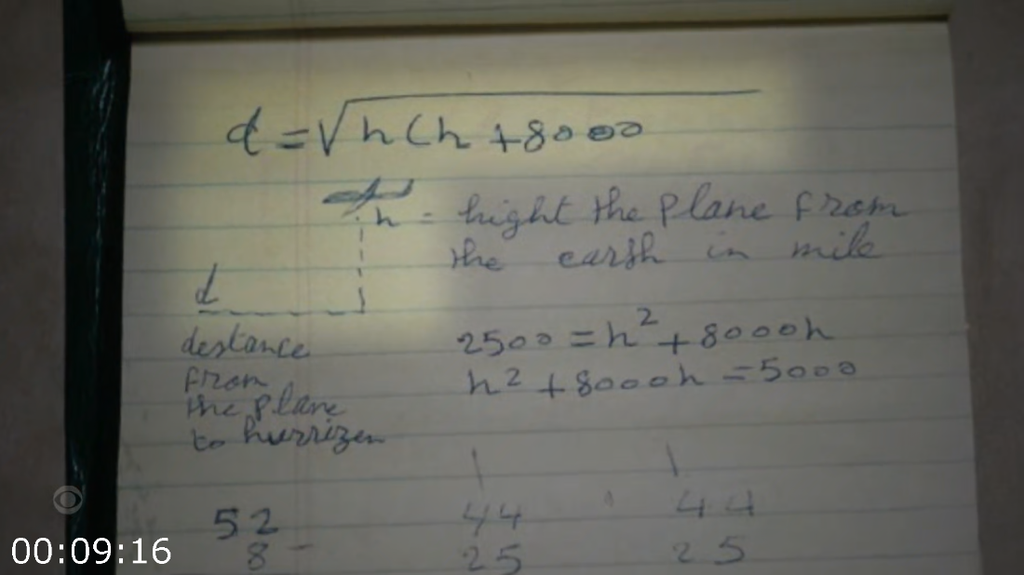 d = √h(h + 8000
h = hight the plane from
the earsh in mile
d
destance
from
the plane
to hurrizen
2500 = h² + 8000h
h² + 8000h = 5000
52
44
44
8 -
25
25
00:09:16